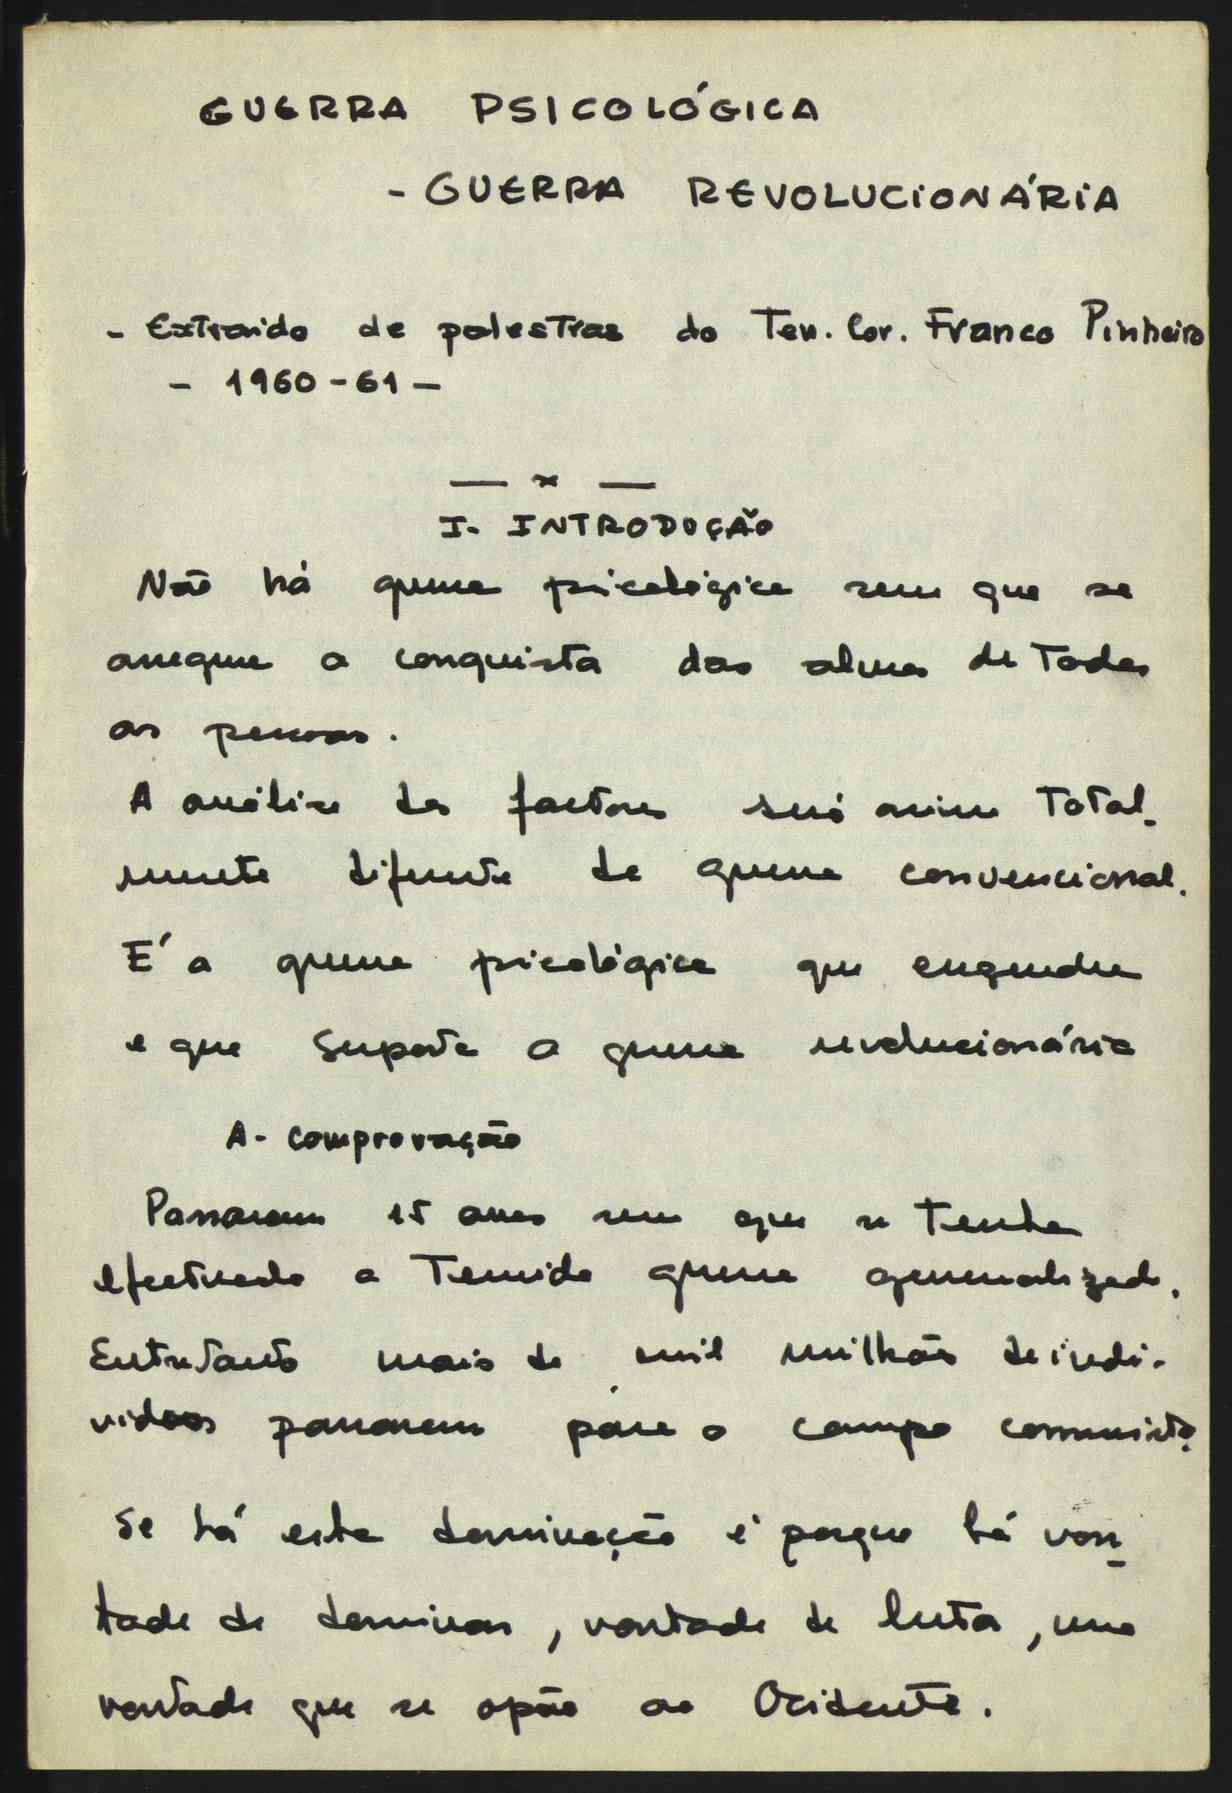 GUERRA PSICOLÓGICA
- GUERRA REVOLUCIONÁRIA
- Extraido de palestras do Ten. Cor. Franco Pinheiro
- 1960-61 -
— x —
I - INTRODUÇÃO
Não há guerra psicológica sem que se
assegure a conquista das almas de Todas
as pessoas.
A análise dos factores será assim Total-
mente diferente da guerra convencional.
É a guerra psicológica que engendra
e que suporta a guerra revolucionária
A - Comprovação
Passaram 15 anos sem que se Tenha
efectuado a Temida guerra generalizada.
Entretanto mais de mil milhões de indi-
viduos passaram para o campo comunista.
Se há esta dominação é porque há von-
tade de dominar, vontade de luta, uma
vontade que se opõe ao Ocidente.